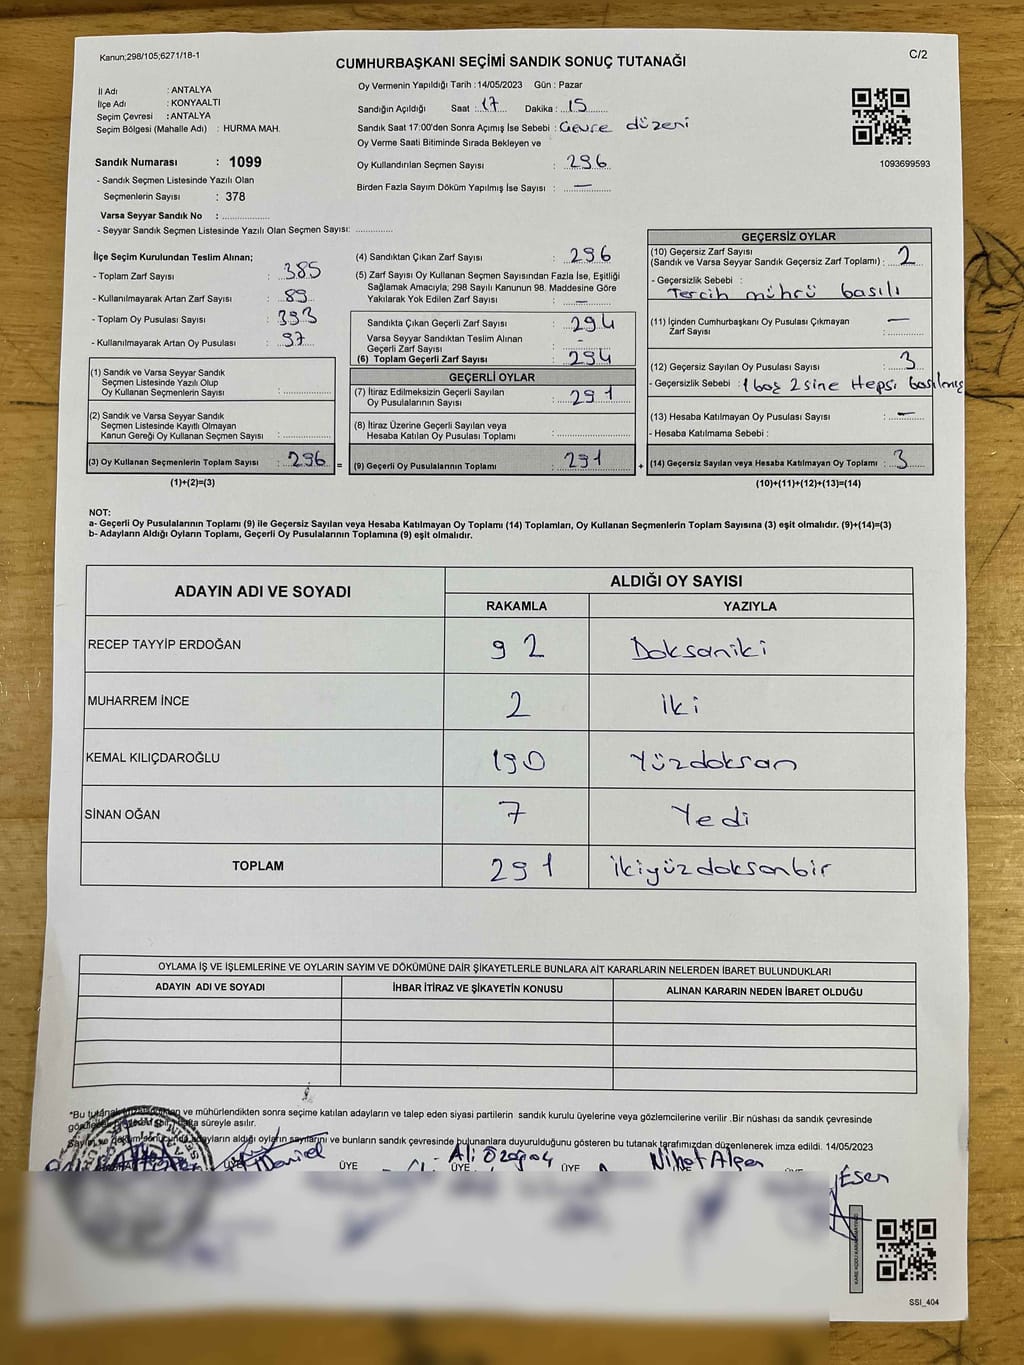 Kanun;298/105;6271/18-1
C/2
CUMHURBAŞKANI SEÇİMİ SANDIK SONUÇ TUTANAĞI
İl Adı : ANTALYA
İlçe Adı : KONYAALTI
Seçim Çevresi : ANTALYA
Seçim Bölgesi (Mahalle Adı) : HURMA MAH.
Sandık Numarası : 1099
- Sandık Seçmen Listesinde Yazılı Olan
Seçmenlerin Sayısı : 378
Varsa Seyyar Sandık No : ..................
- Seyyar Sandık Seçmen Listesinde Yazılı Olan Seçmen Sayısı: ..............
Oy Vermenin Yapıldığı Tarih :14/05/2023 Gün : Pazar
Sandığın Açıldığı Saat : 17 Dakika : 15
Sandık Saat 17:00'den Sonra Açımış İse Sebebi : Gevre düzeni
Oy Verme Saati Bitiminde Sırada Bekleyen ve
Oy Kullandırılan Seçmen Sayısı : 296
Birden Fazla Sayım Döküm Yapılmış İse Sayısı : —
1093699593
İlçe Seçim Kurulundan Teslim Alınan;
- Toplam Zarf Sayısı : 385
- Kullanılmayarak Artan Zarf Sayısı : 89
- Toplam Oy Pusulası Sayısı : 393
- Kullanılmayarak Artan Oy Pusulası : 97
(1) Sandık ve Varsa Seyyar Sandık
Seçmen Listesinde Yazılı Olup
Oy Kullanan Seçmenlerin Sayısı : ..............
(2) Sandık ve Varsa Seyyar Sandık
Seçmen Listesinde Kayıtlı Olmayan
Kanun Gereği Oy Kullanan Seçmen Sayısı : ..............
(3) Oy Kullanan Seçmenlerin Toplam Sayısı : 296 =
(1)+(2)=(3)
(4) Sandıktan Çıkan Zarf Sayısı : 296
(5) Zarf Sayısı Oy Kullanan Seçmen Sayısından Fazla İse, Eşitliği
Sağlamak Amacıyla; 298 Sayılı Kanunun 98. Maddesine Göre
Yakılarak Yok Edilen Zarf Sayısı : —
Sandıkta Çıkan Geçerli Zarf Sayısı : 294
Varsa Seyyar Sandıktan Teslim Alınan
Geçerli Zarf Sayısı : -
(6) Toplam Geçerli Zarf Sayısı : 294
GEÇERLİ OYLAR
(7) İtiraz Edilmeksizin Geçerli Sayılan
Oy Pusulalarının Sayısı : 291
(8) İtiraz Üzerine Geçerli Sayılan veya
Hesaba Katılan Oy Pusulası Toplamı : ..............
(9) Geçerli Oy Pusulalarının Toplamı : 291 +
GEÇERSİZ OYLAR
(10) Geçersiz Zarf Sayısı
(Sandık ve Varsa Seyyar Sandık Geçersiz Zarf Toplamı) : 2
- Geçersizlik Sebebi :
Tercih mührü basılı
(11) İçinden Cumhurbaşkanı Oy Pusulası Çıkmayan
Zarf Sayısı : —
(12) Geçersiz Sayılan Oy Pusulası Sayısı : 3
- Geçersizlik Sebebi : 1 boş 2sine Hepsi basılmış
(13) Hesaba Katılmayan Oy Pusulası Sayısı : —
- Hesaba Katılmama Sebebi :
(14) Geçersiz Sayılan veya Hesaba Katılmayan Oy Toplamı : 3
(10)+(11)+(12)+(13)=(14)
NOT:
a- Geçerli Oy Pusulalarının Toplamı (9) ile Geçersiz Sayılan veya Hesaba Katılmayan Oy Toplamı (14) Toplamları, Oy Kullanan Seçmenlerin Toplam Sayısına (3) eşit olmalıdır. (9)+(14)=(3)
b- Adayların Aldığı Oyların Toplamı, Geçerli Oy Pusulalarının Toplamına (9) eşit olmalıdır.
ADAYIN ADI VE SOYADI ALDIĞI OY SAYISI
RAKAMLA YAZIYLA
RECEP TAYYİP ERDOĞAN 92 Doksaniki
MUHARREM İNCE 2 iki
KEMAL KILIÇDAROĞLU 190 Yüzdoksan
SİNAN OĞAN 7 Yedi
TOPLAM 291 ikiyüzdoksanbir
OYLAMA İŞ VE İŞLEMLERİNE VE OYLARIN SAYIM VE DÖKÜMÜNE DAİR ŞİKAYETLERLE BUNLARA AİT KARARLARIN NELERDEN İBARET BULUNDUKLARI
ADAYIN ADI VE SOYADI İHBAR İTİRAZ VE ŞİKAYETİN KONUSU ALINAN KARARIN NEDEN İBARET OLDUĞU
*Bu ve mühürlendikten sonra seçime katılan adayların ve talep eden siyasi partilerin sandık kurulu üyelerine veya gözlemcilerine verilir .Bir nüshası da sandık çevresinde
süreyle asılır.
adayların aldığı oyların sayılarını ve bunların sandık çevresinde bulunanlara duyurulduğunu gösteren bu tutanak tarafımızdan düzenlenerek imza edildi. 14/05/2023
Ali Özoğaç Nihat Alper
ÜYE ÜYE ÜYE
Esen
SSI_404